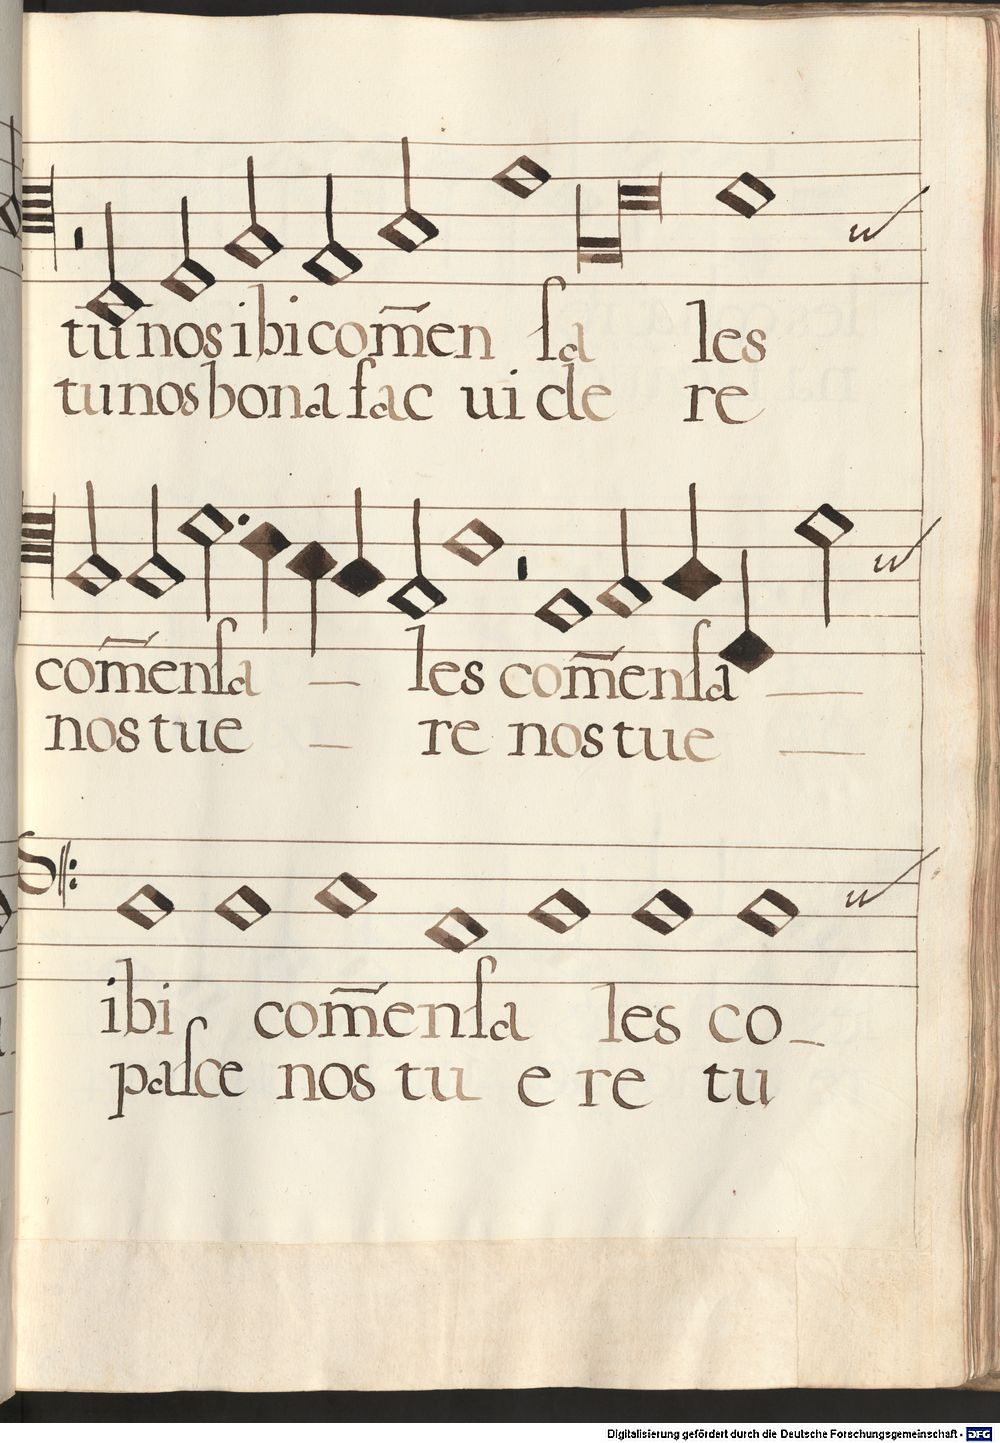 tu nos ibi com̃en ſa les
tu nos bona fac uide re
com̃enſa les com̃enſa
nos tue re nos tue
ibi com̃enſa les co
paſce nos tu e re tu
Digitalisierung gefördert durch die Deutsche Forschungsgemeinschaft - DFG